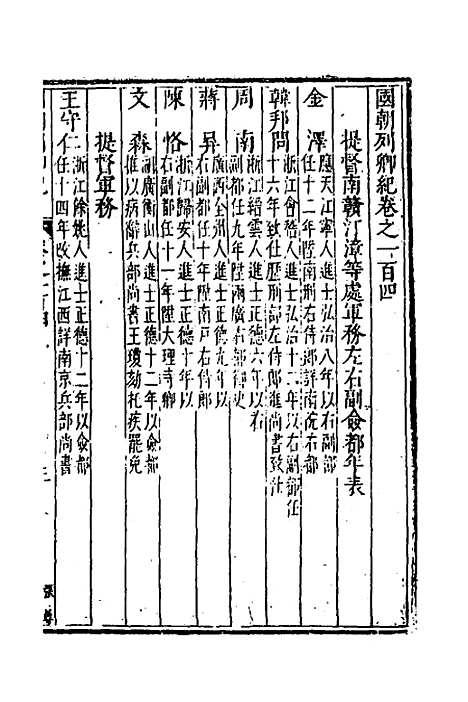 國朝列卿紀卷之一百四
提督南贛汀漳等處軍務左右副僉都年表
金澤應天江寧人進士弘治八年以右副都
任十二年陞南刑右侍郎詳南院右都
韓邦問浙江會稽人進士弘治十二年以右副都任
十六年致仕歷刑部左侍郎進尚書致仕
周南浙江縉雲人進士正德六年以右
副都任九年陞兩廣右都御史
蔣昇廣西全州人進士正德九年以
右副都任十年陞南戶右侍郎
陳恪浙江歸安人進士正德十年以
右副都任十一年陞大理寺卿
文森湖廣衡山人進士正德十二年以僉都
推以病辭兵部尚書王瓊劾托疾罷免
提督軍務
王守仁浙江餘姚人進士正德十二年以僉都
任十四年改撫江西詳南京兵部尚書